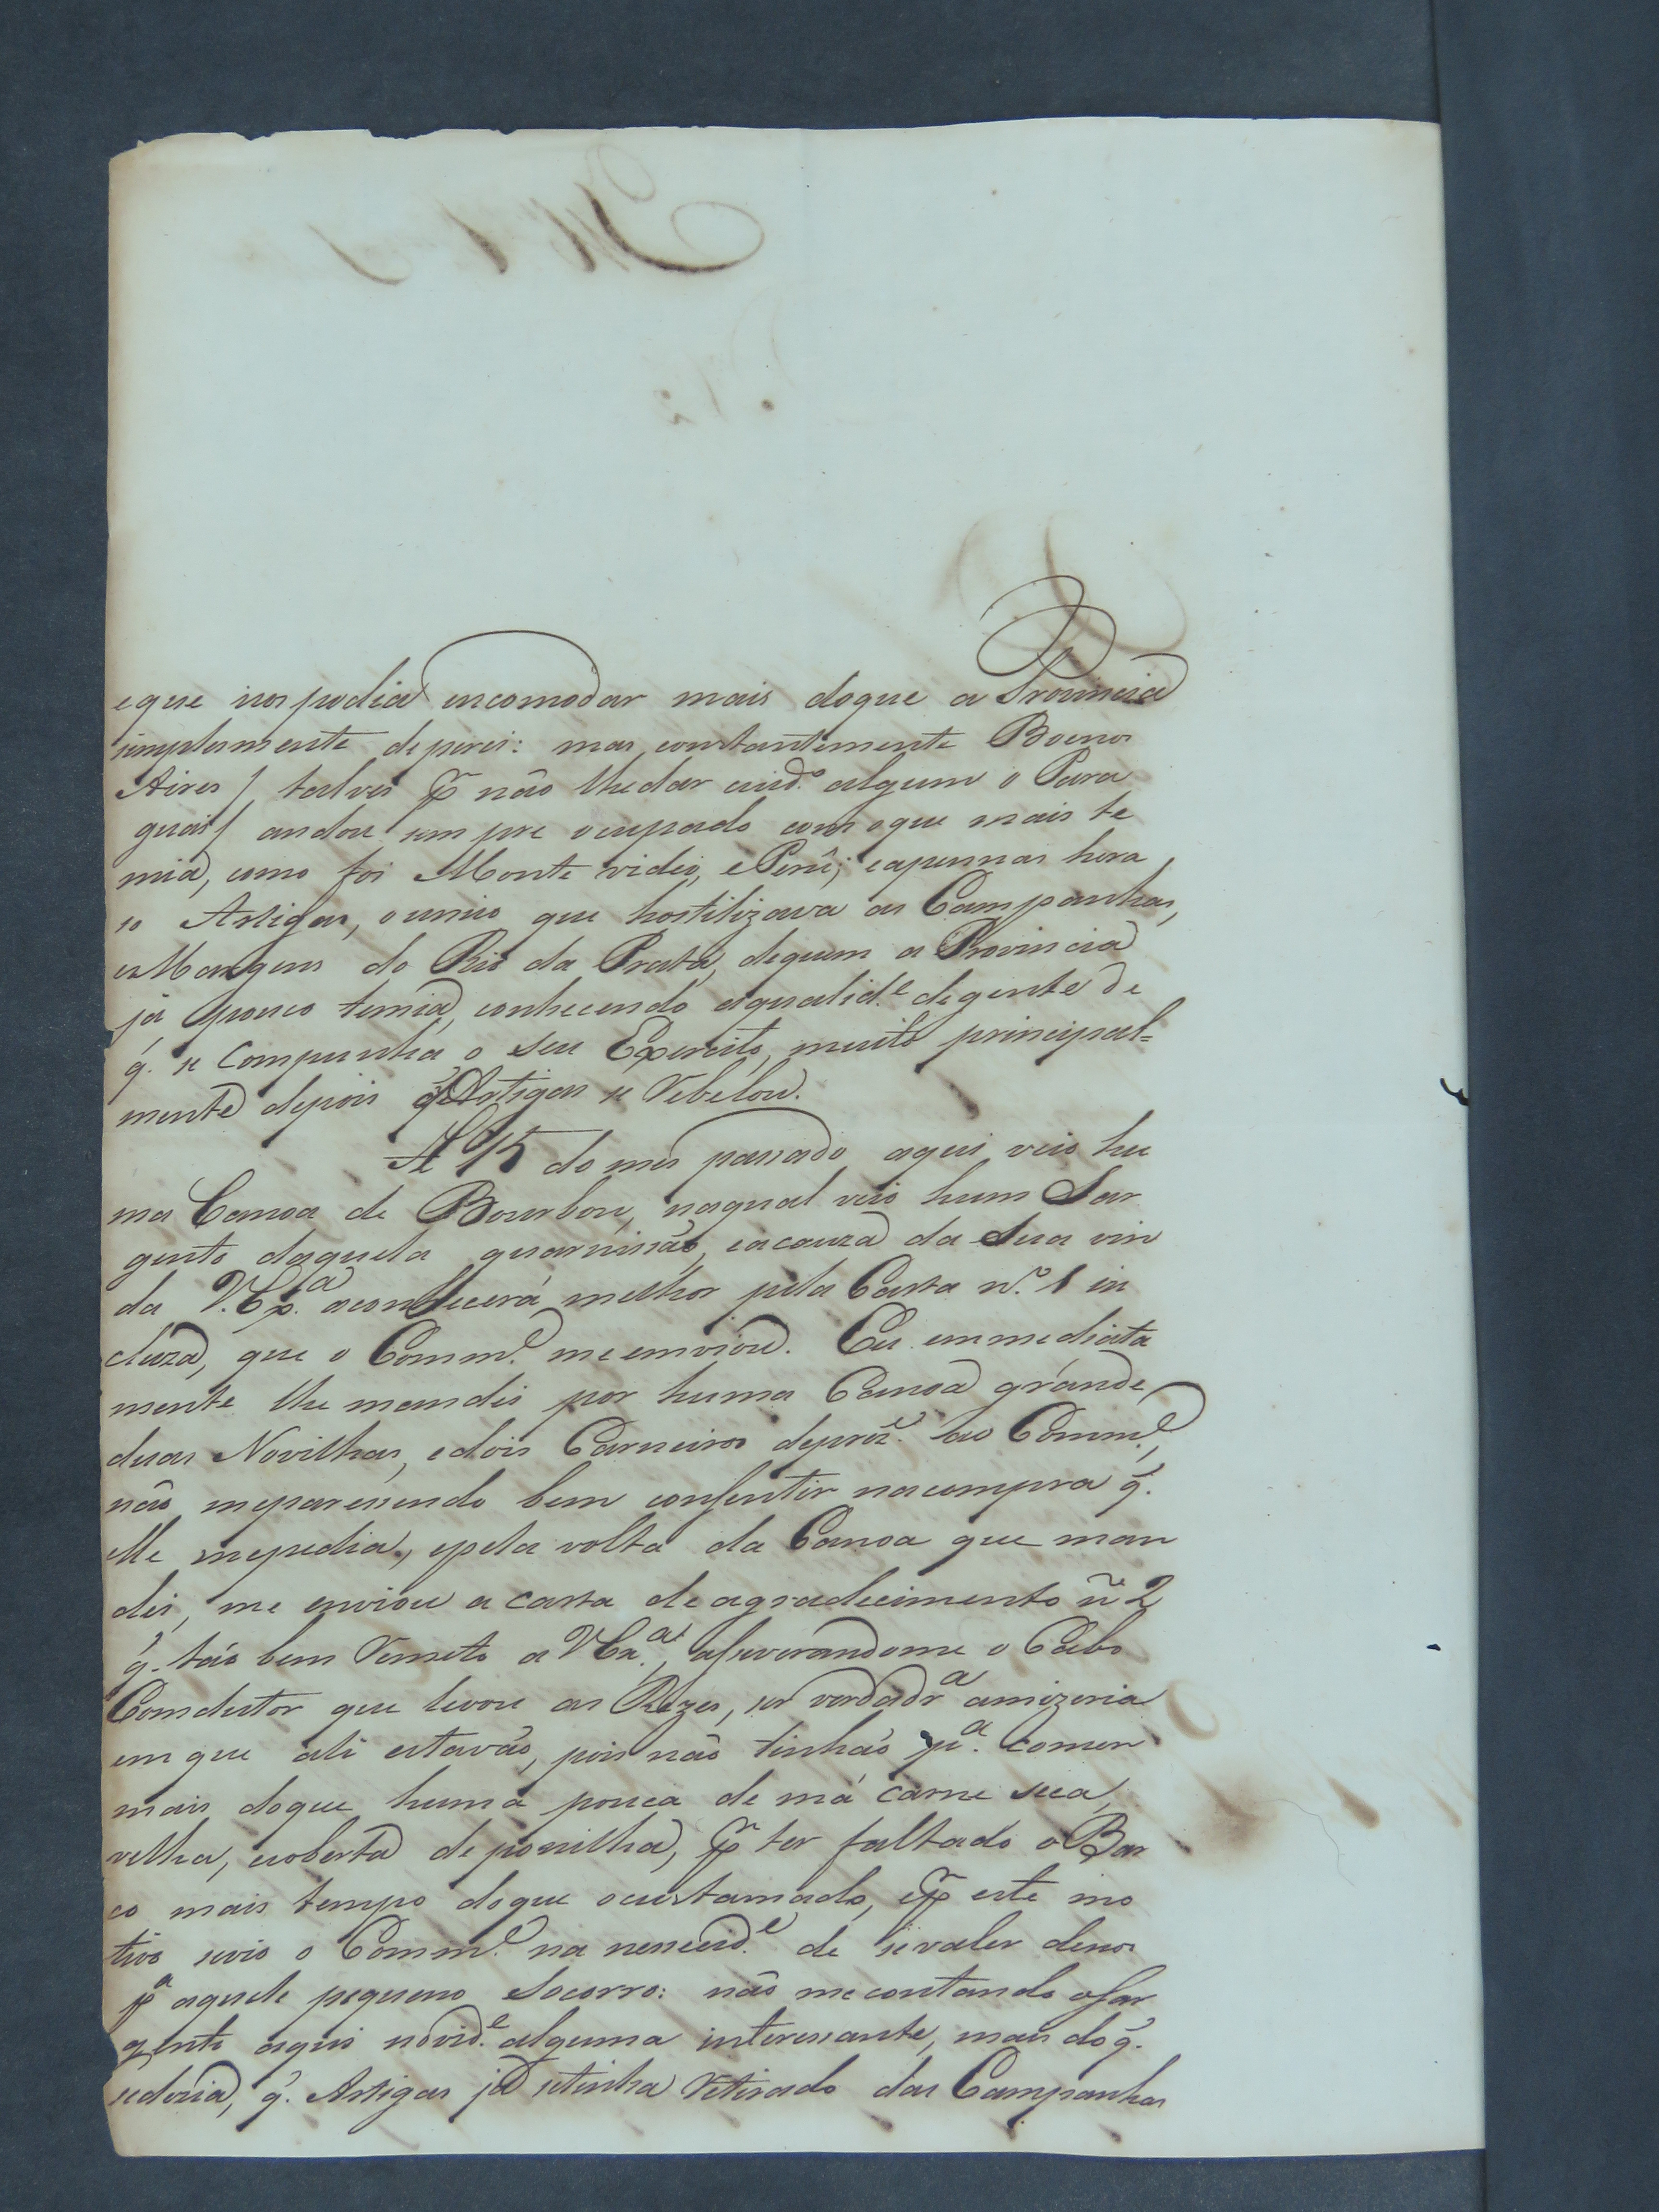 e que nos podia encomodar mais doque a Provincia
simplesmente depersi: mas constantemente Boenos
Aires / talves p̃ não lhedar cuid.º algum o Para
guai / andou sempre ocupado com oque mais te
mia, como foi Monte vidio, e Perû; eapennas hera
so Artigas, ounico que hostilizava as Campanhas,
e Margens do Rio da Prata, dequem a Provincia
já pouco temia, conhecendo aqualid.e degente de
q̃. se compunha o seu Exercito, muito principal=
mente depois q̃ Artigas se Rebelou.
A 15 do mes passado aqui veio hu
ma Canoa de Bourbon, naqual veio hum Sar
gento daquela guarnissão, eacauza da sua vin
da V. Ex.a aconhecerá melhor pela Carta n.º 1 in
cluza, que o Comm.e me enviou. Eu emmediata
mente lhe mandei por huma Canoa grande
duas Novilhas, edois Carneiros deprez.e ao Comm.e,
não meparessendo bem consentir nacompra q̃.
elle mepedia, epela volta da Canoa que man
dei, me enviou a carta de agradecimento ñ 2
q̃. tão bem Remeto a V Ex.a, aseverandome o Cabo
Condutor que levou as Rezes, ser verdadr.a amizeria
em que ali estavão, pois não tinhão p.a comer
mais doque huma pouca de má carne seca,
velha, ecoberta de ponilha, p̃ ter faltado o Bar
co mais tempo doque ocustumado, ep̃ este mo
tivo sevio o Comm.e na nesscid.e de sevaler denos
p.a aquele pequeno socorro: não mecontando osar
gento aqui novid.e alguma interessante, mais do q̃.
sedezia, q̃. Artigas já setinha Retirado das Campanhas